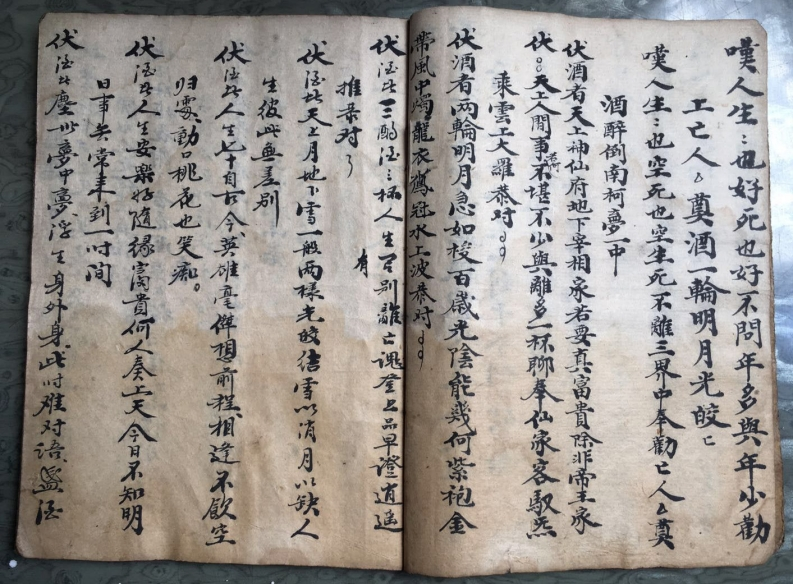 嘆人生〻也好死也好不問年多與年少勸
亡亡人〻奠酒一輪明月光皎〻
嘆人生〻也空死也空生死不離三界中奉勸亡人〻奠
酒醉倒南柯夢一中
伏酒者天上神仙府地下宰相家若要真富貴除非帝王家
伏〻天上人間事不堪不少與離多一杯聊奉仙家客馭炁
乘雲上大羅恭对〻〻
伏酒者两輪明月急如梭百歲光陰能幾何紫袍金
帶風中燭龍衣鳳冠水上波恭对〻〻
伏酒此三酌酒三杯人生有别離亡魂登上品早證逍遥
推恭对了
伏酒此天上月地下雪一般两樣光皎结雪以消月以缺人
生彼此無差别
伏酒此人生七十自古今英雄毫傑想前程相逢不飲空
归去動口桃花也笑痴。
伏酒此人生安樂好隨緣富貴何人奏上天今日不知明
日事無常来到一时间
伏酒此塵此夢中夢浮生身外身此时难对语盏酒